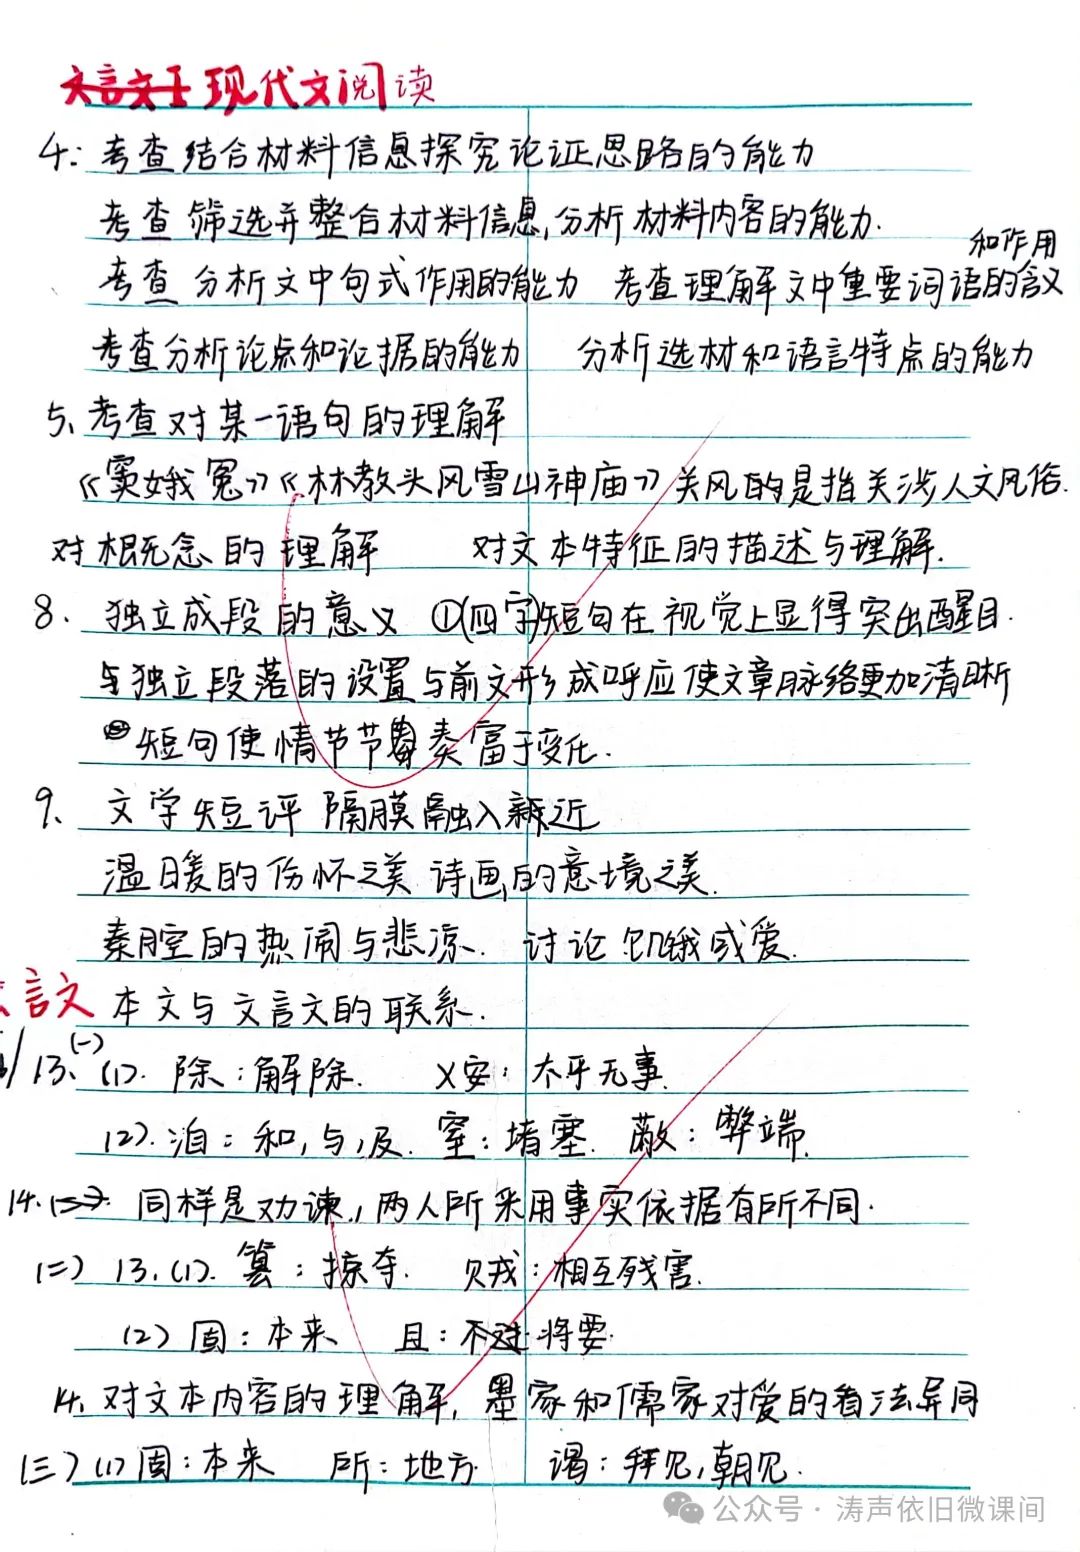 现代文阅读
4: 考查结合材料信息探究论证思路的能力
考查筛选并整合材料信息,分析材料内容的能力.
和作用
考查分析文中句式作用的能力 考查理解文中重要词语的含义
考查分析论点和论据的能力 分析选材和语言特点的能力
5、考查对某一语句的理解
《窦娥冤》《林教头风雪山神庙》关风的是指关涉人文风俗.
对概念的理解 对文本特征的描述与理解.
8. 独立成段的意义 ①(四字)短句在视觉上显得突出醒目.
与独立段落的设置与前文形成呼应使文章脉络更加清晰
②短句使情节节奏富于变化.
9、文学短评 隔膜融入亲近
温暖的伤怀之美 诗画的意境之美.
秦腔的热闹与悲凉. 讨论饥饿或爱.
言文 本文与文言文的联系.
13.(一)(1). 除:解除. 乂安:太平无事.
(2).洎:和,与,及. 窒:堵塞. 蔽:弊端.
14. 同样是劝谏,两人所采用事实依据有所不同.
(二) 13.(1). 篡:掠夺. 贼:相互残害.
(2) 固:本来 且:将要.
14. 对文本内容的理解,墨家和儒家对爱的看法异同
(三)(1)固:本来 所:地方 谒:拜见,朝见.
公众号·涛声依旧微课间